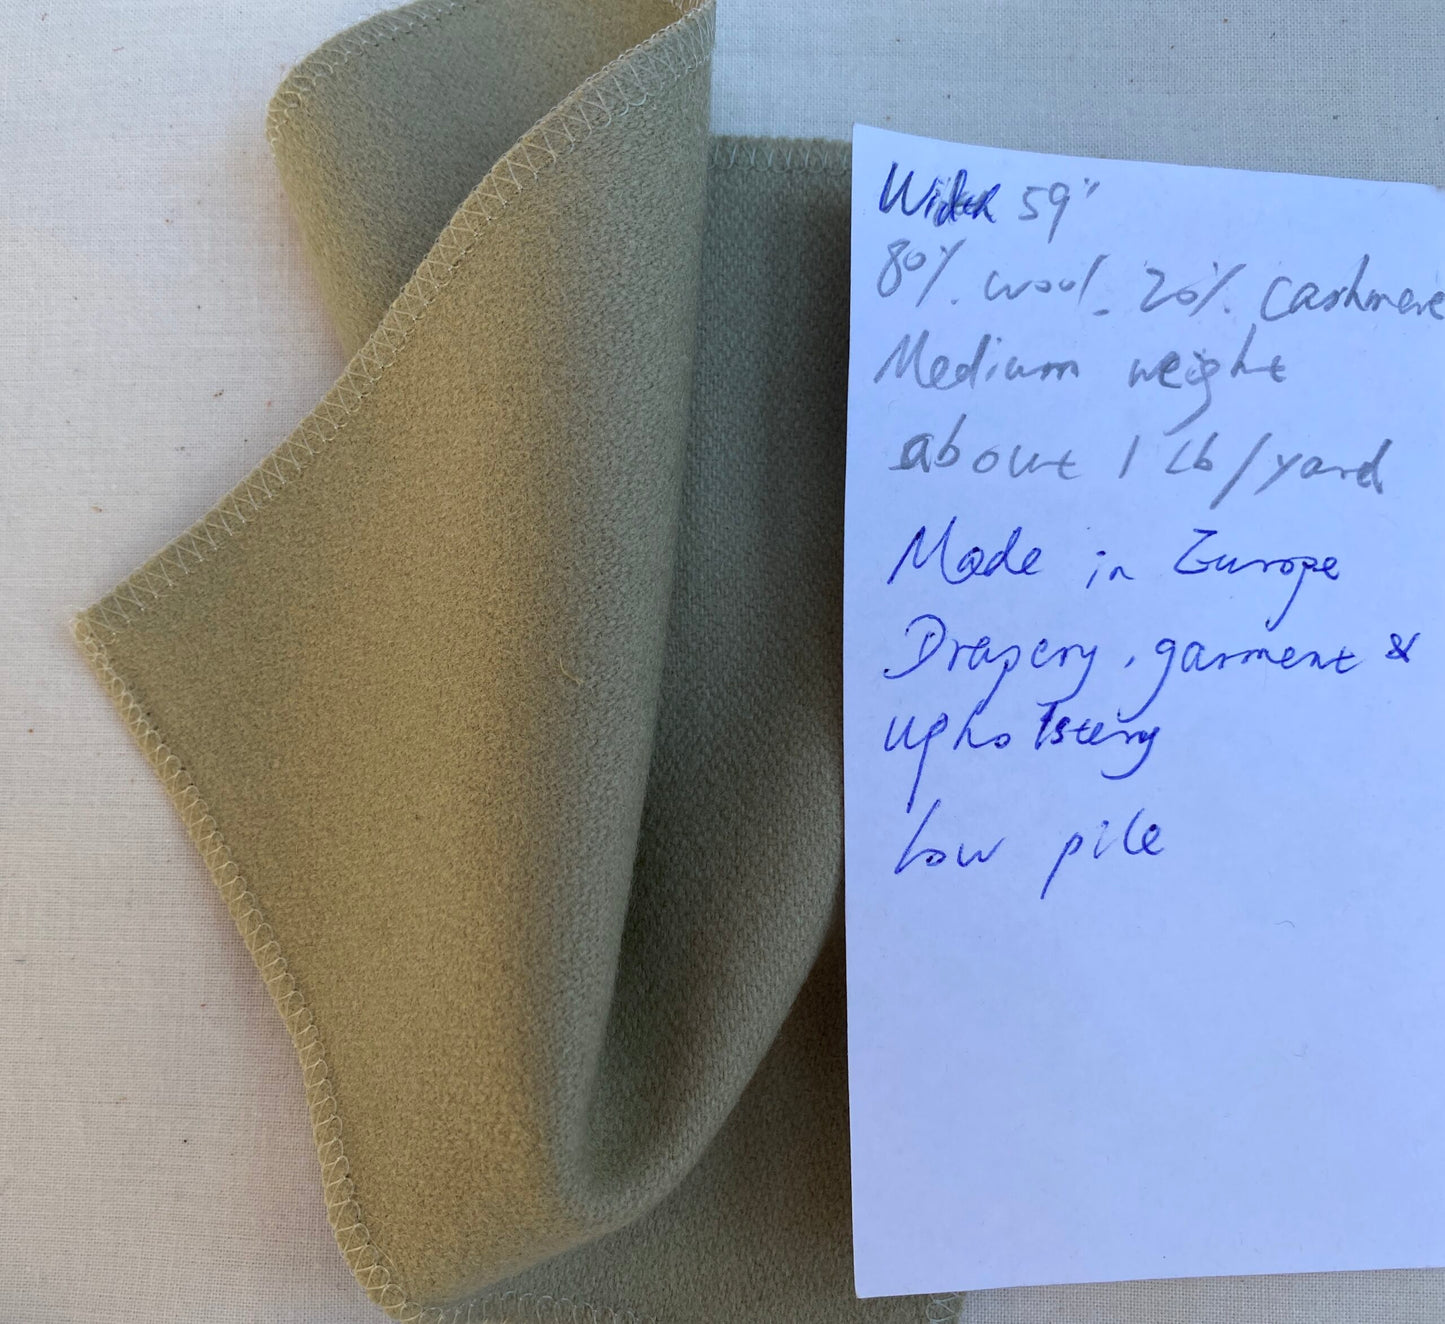 Width 59"
80%. wool. 20%. Cashmere
Medium weight
about 1 lb/yard
Made in Europe
Drapery, garment &
upholstery
Low pile